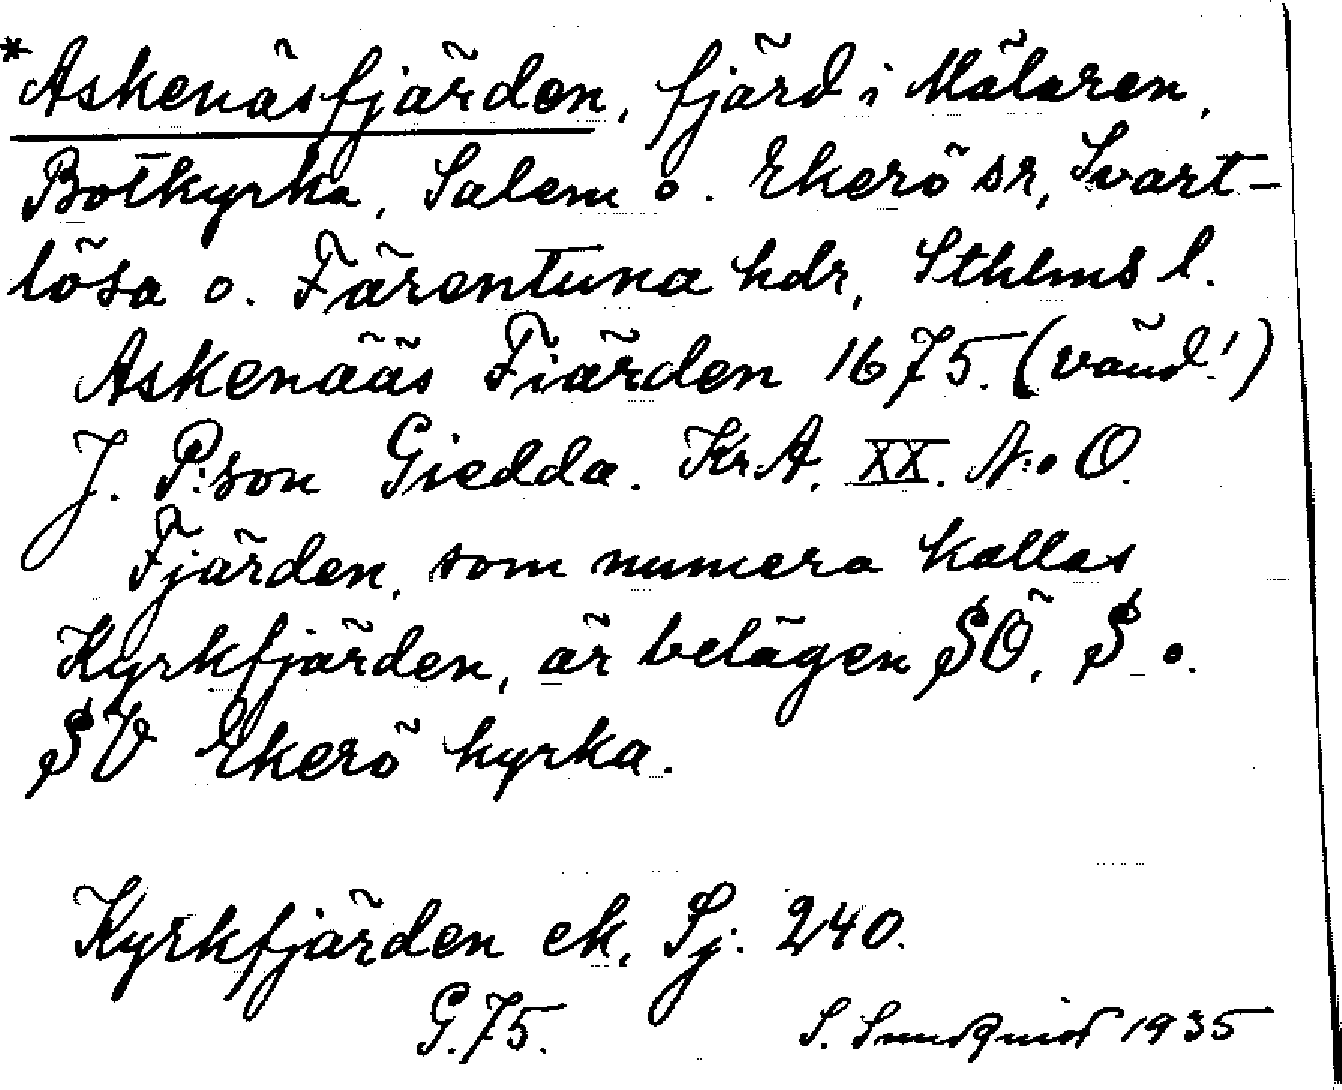 *Askenäsfjärden, fjärd i Mälaren,
Botkyrka, Salem o. Ekerö sr, Svart-
lösa o. Färentuna hdr, Sthlms l.
Askenääs Fiärden 1675. (vänd!)
J. P:son Giedda. Kr.A. XX. N:o O.
Fjärden, som numera kallas
Kyrkfjärden, är belägen SÖ, S o.
SV Ekerö kyrka.
Kyrkfjärden ek. Sj. 240.
G.75. S. Sundquist 1935